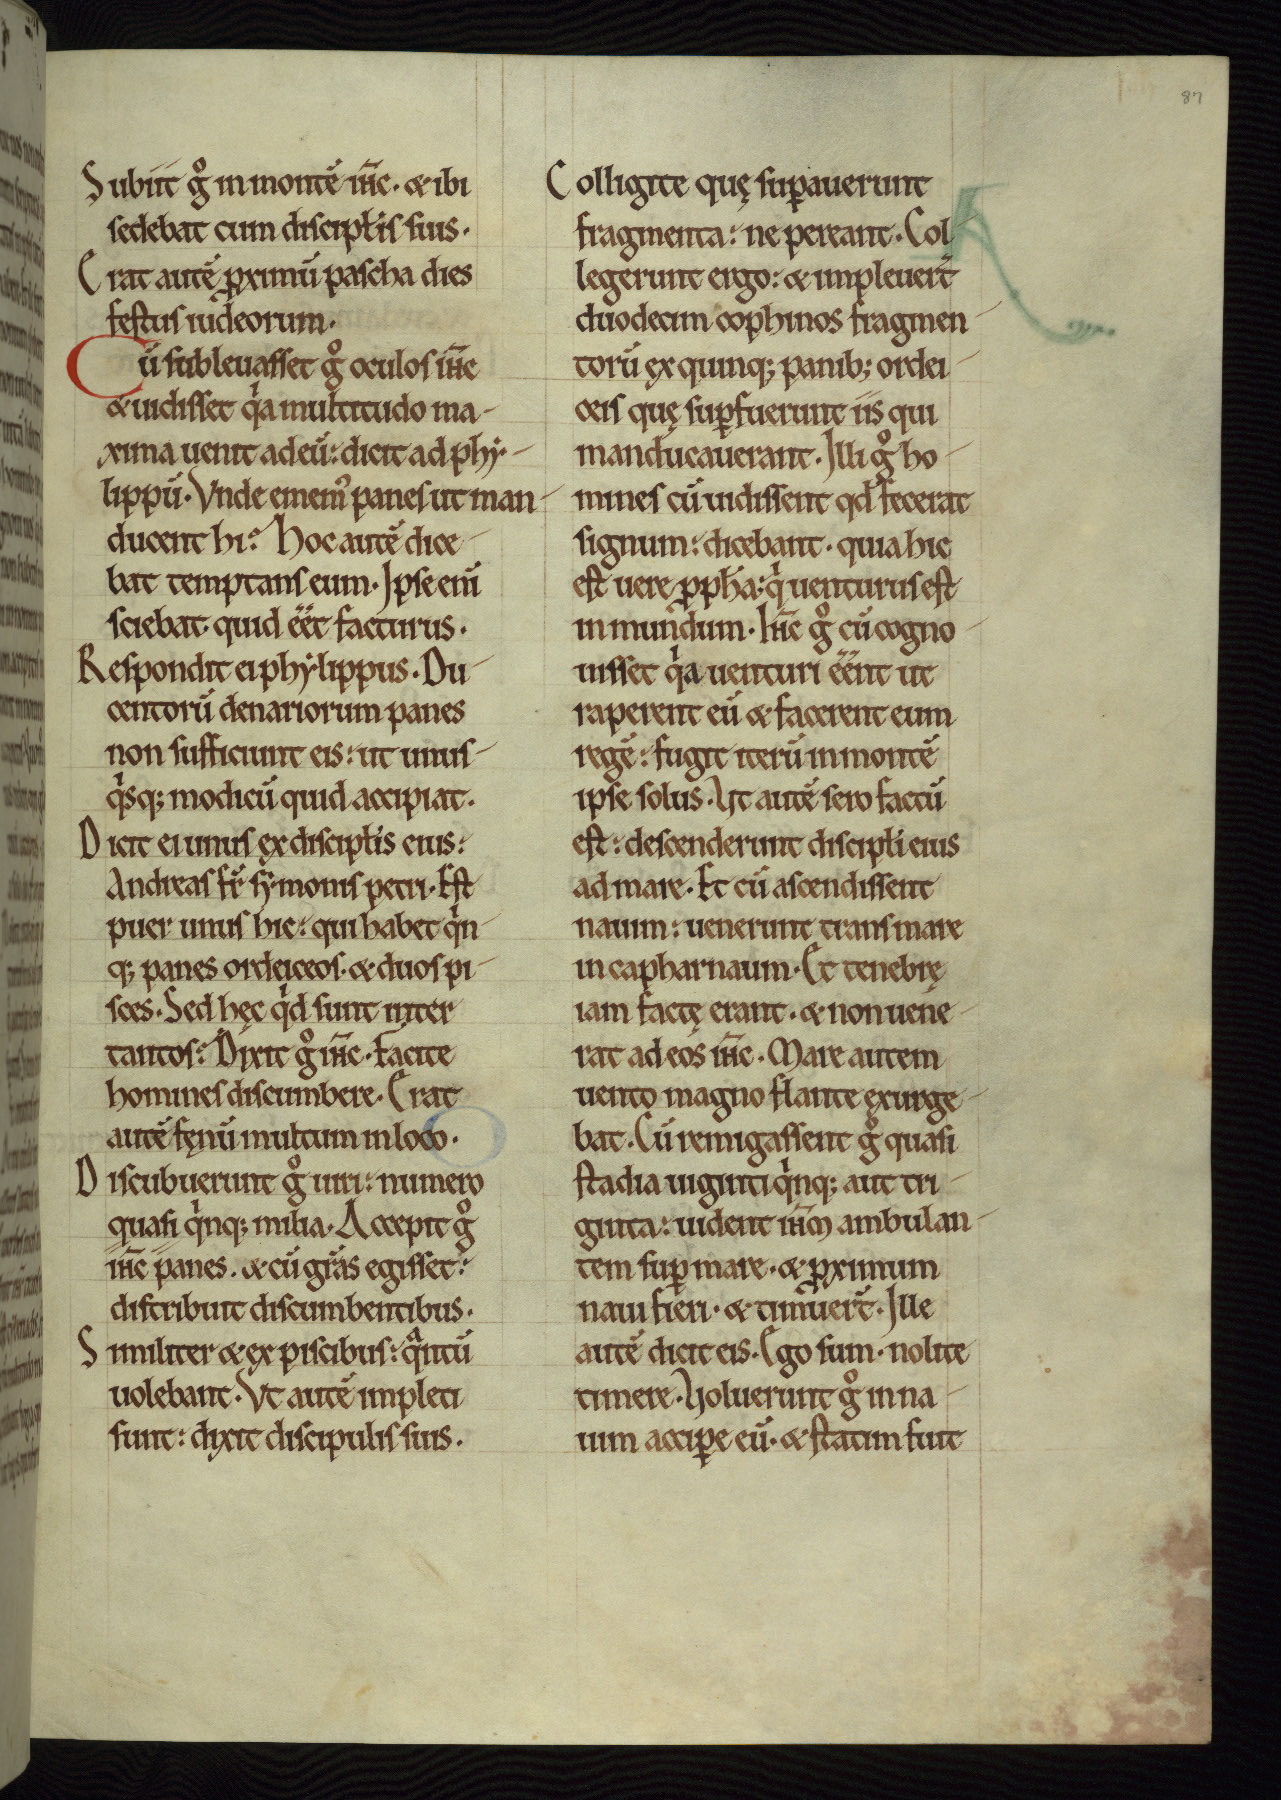 87
Subiit g̊ in montē ih̄c · & ibi
sedebat cum discipłis suis ·
Erat autē ꝓximū pascha dies
festus iudeorum ·
Cū subleuasset g̊ oculos ih̄c
& uidisset qͥa multitudo ma-
xima uenit ad eū: dicit ad phẏ-
lippū · Vnde ememꝰ panes ut man-
ducent hi? Hoc autē dice-
bat temptans eum · Ipse enī
sciebat quid ēēt facturus ·
Respondit ei phẏlippus · Du-
centorū denariorum panes
non sufficiunt eis: ut unus-
qͥsq; modicū quid accipiat ·
Dicit ei unus ex discipłis eius:
Andreas fr̄ sẏmonis petri · Est
puer unus hic: qui habet qͥn-
q; panes ordeiceos · & duos pi-
sces · Sed hęc qͥd sunt inter
tantos? Dixit g̊ ih̄c · Facite
homines discumbere · Erat
autē fęnū multum in loco ·
Discubuerunt g̊ uiri: numero
quasi qͥnq; milia · Accepit g̊
ih̄c panes · & cū gr̄as egisset:
distribuit discumbentibus ·
Similiter & ex piscibus: qͣntū
uolebant · Vt autē impleti
sunt: dixit discipulis suis ·
Colligite quę suꝑauerunt
fragmenta: ne pereant · Col
legerunt ergo: & impleuer̄t
duodecim cophinos fragmen-
torū ex quinq; panib; ordei-
ceis quę suꝑfuerunt iis qui
manducauerant · Illi g̊ ho-
mines cū uidissent qđ fecerat
signum: dicebant · quia hic
est uere ꝓph̄a: qͥ uenturus est
in mundum · Ih̄c g̊ cū cogno-
uisset qͥa uenturi ēēnt ut
raperent eū & facerent eum
regē: fugit iterū in montē
ipse solus · Ut autē sero factū
est: descenderunt discipłi eius
ad mare · Et cū ascendissent
nauim: uenerunt trans mare
in capharnaum · Et tenebrę
iam factę erant · & non uene-
rat ad eos ih̄c · Mare autem
uento magno flante exurge-
bat · Cū remigassent g̊ quasi
stadia uiginti qͥnq; aut tri-
ginta: uident ih̄m ambulan-
tem suꝑ mare · & ꝓximum
naui fieri · & timuer̄t · Ille
autē dicit eis · Ego sum · nolite
timere · Uoluerunt g̊ in na-
uim acciꝑe eū · & statim fuit